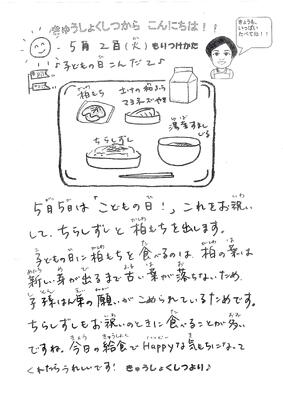 きゅうしょくしつから こんにちは！
きょうも、
いっぱい
たべてね！！
5月2日(火) もりつけかた
♪子どもの日こんだて♪
柏もち
マヨネーズやき
ちらしずし
湯葉すまし
じる
5月5日は「こどもの日！」これをお祝い
して、ちらしずしと柏もちを出します。
子どもの日に柏もちを食べるのは、柏の葉は
新しい芽が出るまで古い葉が落ちないため、
子孫はん栄の願いがこめられているためです。
ちらしずしもお祝いのときに食べることが多い
ですね。今日の給食でHappyな気もちになって
くれたらうれしいです！ きゅうしょくしつより♪